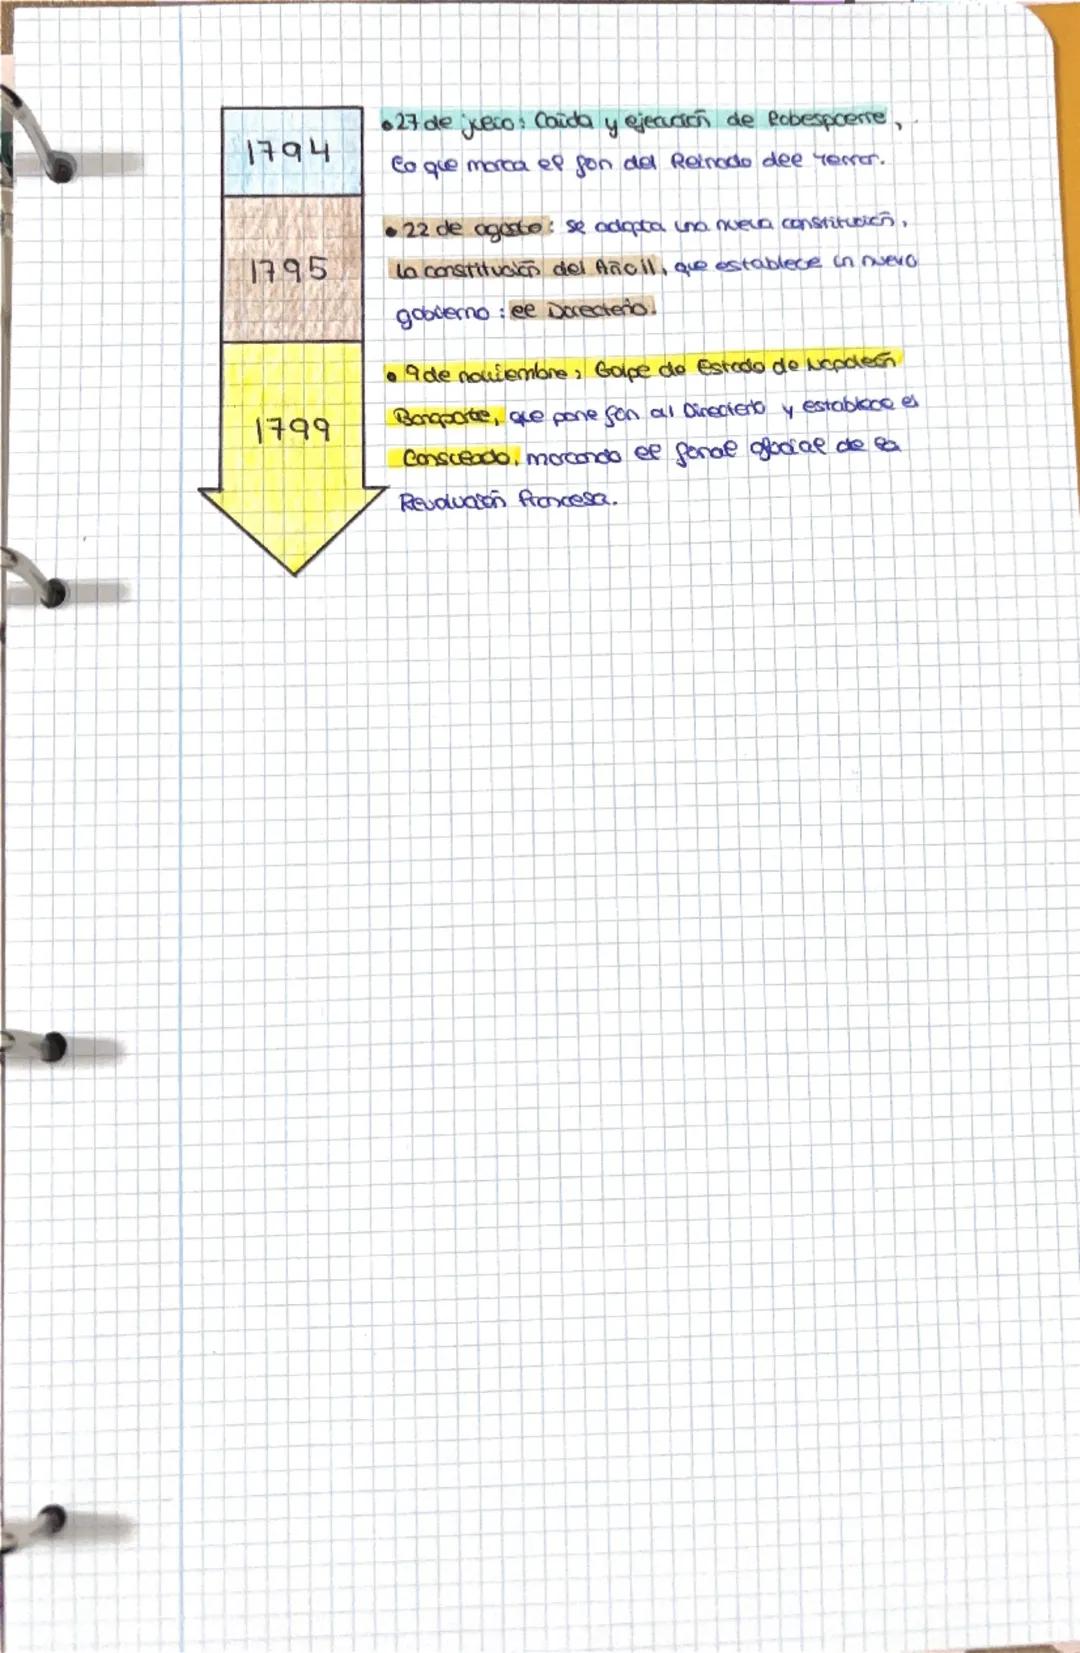 1794
• 27 de julio: Caída y ejecución de Robespierre,
lo que marca el fin del Reinado del Terror.
1795
• 22 de agosto: se adopta una nueva constitución,
la constitución del Año III, que establece un nuevo
gobierno: el Directorio.
1799
• 9 de noviembre: Golpe de Estado de Napoleón
Bonaparte, que pone fin al Directorio y establece el
Consulado, marcando el final oficial de la
Revolución francesa.